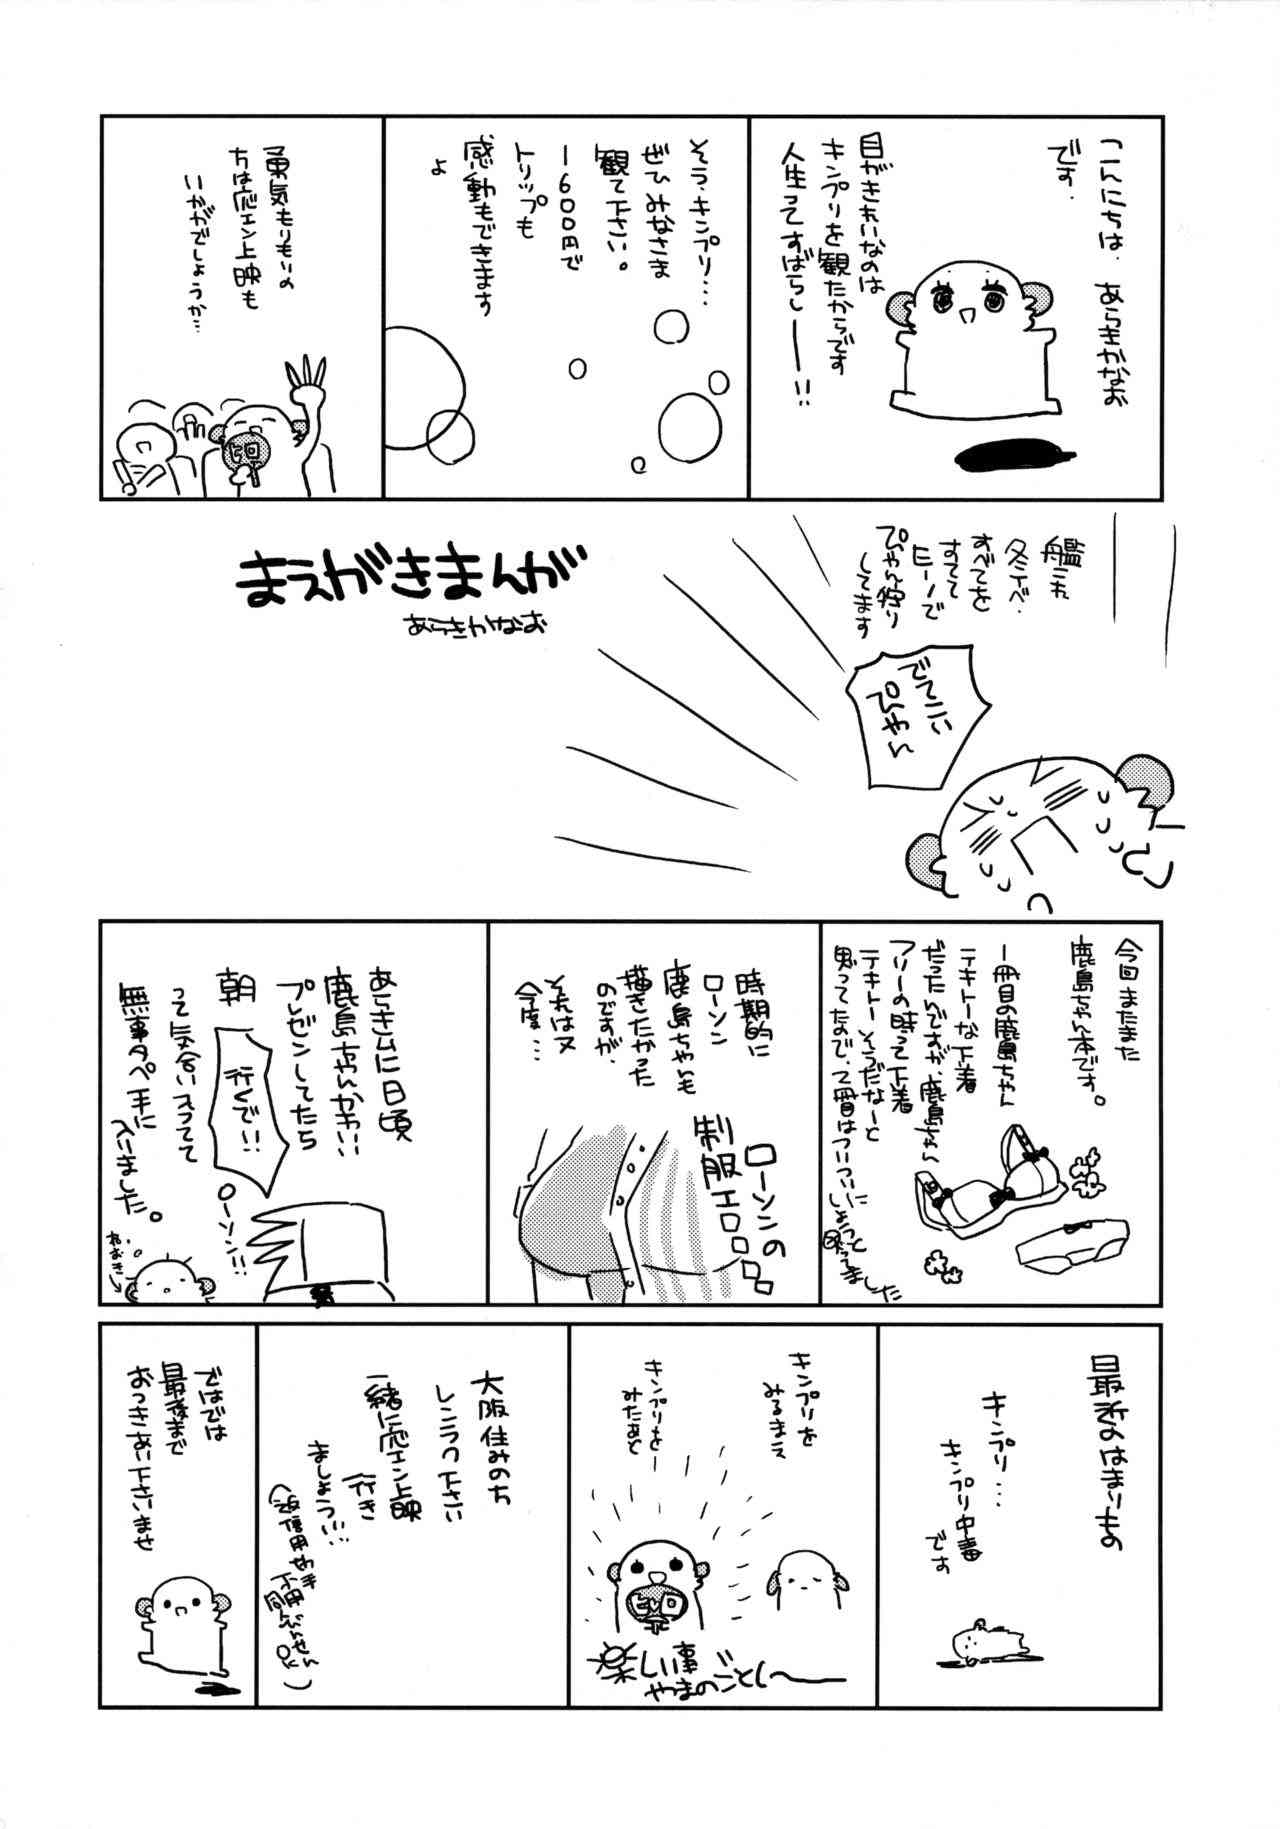 こんにちは. あらきかなお
です.
目がきれいなのは
キンプリを観たからです
人生ってすばらしーー!!
そう、キンプリ...
ぜひみなさま
観て下さい。
1600円で
トリップも
感動もできます
よ
勇気もりもりの
ちは応エン上映も
いかがでしょうか...
ヒロ
まえがきまんが
あらきかなお
艦これ
冬イベ.
すべてを
すてて
ヒーノで
ぴゃん狩り
してます
でてこい
ぴゃん
今回またまた
鹿島ちゃん本です。
一冊目の鹿島ちゃん
テキトーな下着
だったんですが、鹿島ちゃん
フリーの時って下着
テキトーそうだなーと
思ってたので、2冊目はついついに
時期的に
ローソン
鹿島ちゃんも
描きたかった
のですが、
それは又
今度...
ローソンの
制服エロロロロ
あらきムに日頃
鹿島ちゃんかわいい
プレゼンしてたら
朝
行くで!!
ローソン!!
って気合い入ってて
無事タペ手に
入りました。
ねおき
最近のはまりもの
キンプリ...
キンプリ中毒
です
キンプリを
みるまえ
キンプリをー
みたあと
ヒロ
楽しい事
やまのごとしー
大阪住みのち
レンラク下さい
一緒に応エン上映
行き
ましょう!!...
ではでは
最後まで
おつきあい下さいませ